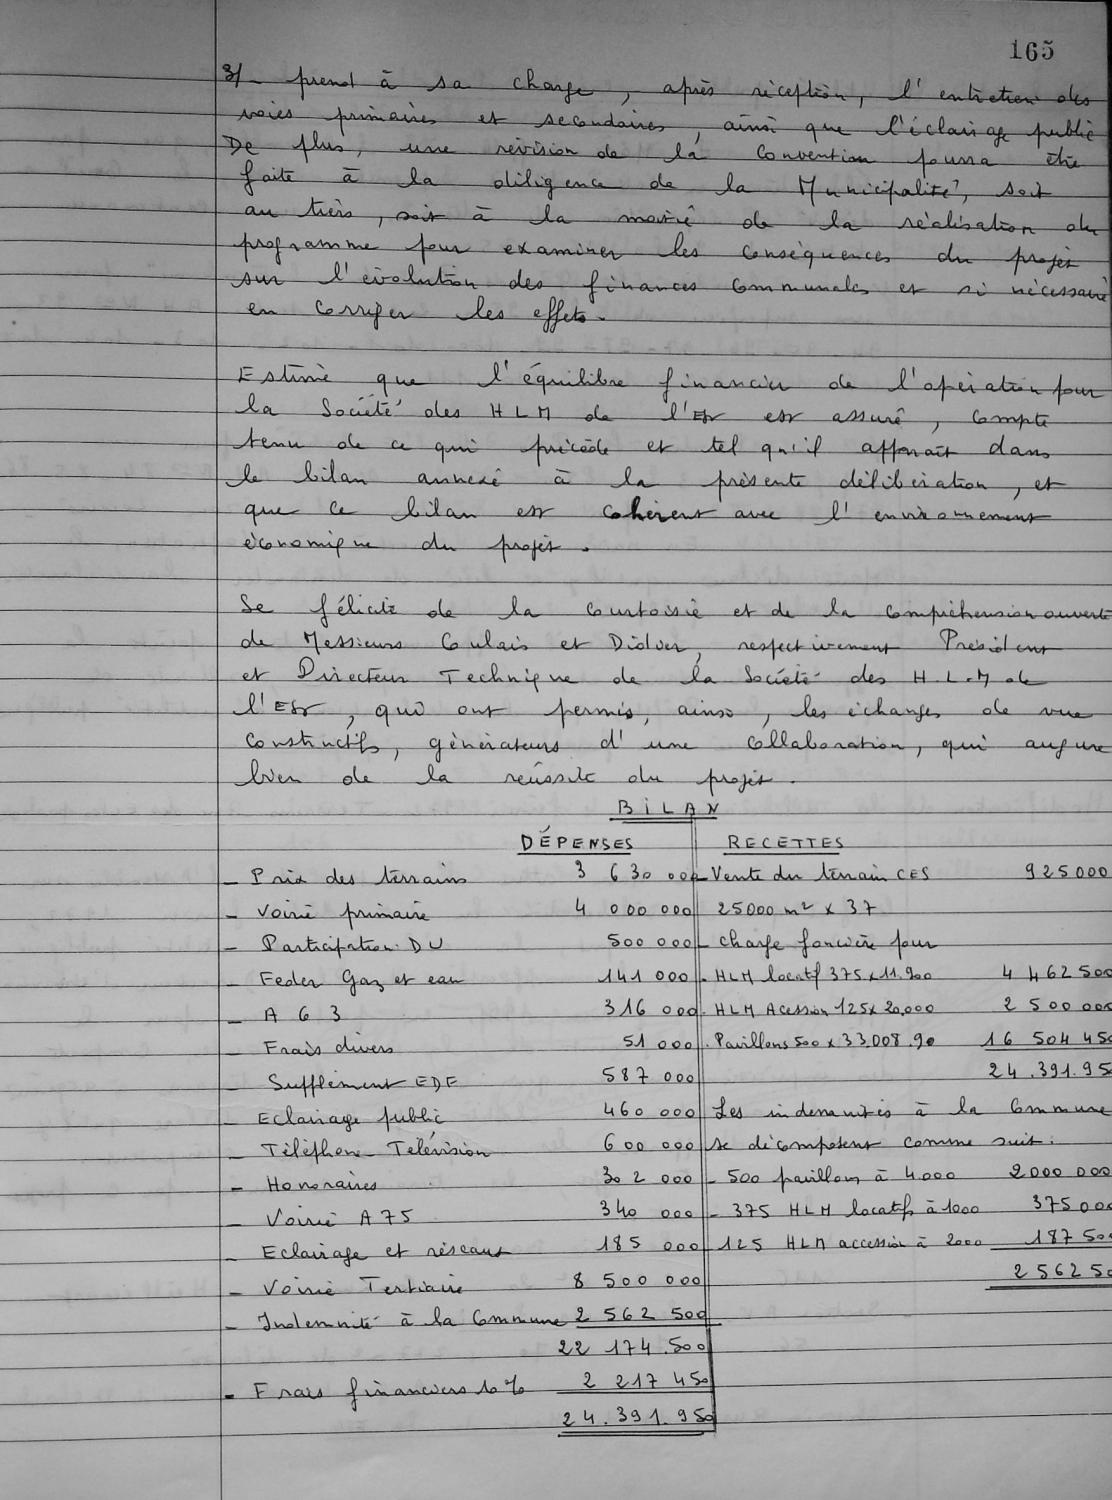 165
3/- prend à sa charge, après réception, l'entretien des
voies primaires et secondaires, ainsi que l'éclairage public
De plus, une révision de la convention pourra être
faite à la diligence de la Municipalité, soit
au tiers, soit à la moitié de la réalisation du
programme pour examiner les conséquences du projet
sur l'évolution des finances communales et si nécessaire
en corriger les effets.
Estime que l'équilibre financier de l'opération pour
la Société des HLM de l'Est est assuré, compte
tenu de ce qui précède et tel qu'il apparaît dans
le bilan annexé à la présente délibération, et
que ce bilan est cohérent avec l'environnement
économique du projet.
Se félicite de la courtoisie et de la compréhension ouverte
de Messieurs Coulais et Didier, respectivement Président
et Directeur Technique de la Société des H.L.M de
l'Est, qui ont permis, ainsi, les échanges de vue
constructifs, générateurs d'une collaboration, qui augure
bien de la réussite du projet.
BILAN
DÉPENSES RECETTES
- Prix des terrains 3 630 000 - Vente du terrain CES 925000
- Voirie primaire 4 000 000 25000 m² x 37
- Participation DU 500 000 - charge foncière pour
- Feder Gaz et eau 141 000 - HLM locatif 375 x 11.900 4 462 500
- A 63 316 000 - HLM Acession 125 x 20,000 2 500 000
- Frais divers 51 000 - Pavillons 500 x 33.008.90 16 504 450
- Supplément EDF 587 000 24.391.95
- Eclairage public 460 000 Les indemnités à la Commune
- Téléphone - Télévision 600 000 se décomposent comme suit:
- Honoraires 302 000 - 500 pavillons à 4.000 2000 000
- Voirie A75 340 000 - 375 HLM locatifs à 1000 375 000
- Eclairage et réseaux 185 000 - 125 HLM accession à 2000 187 500
- Voirie Tertiaire 8 500 000 2 562 50
- Indemnité à la Commune 2 562 500
22 174.500
- Frais financiers 10% 2 217 450
24.391.950